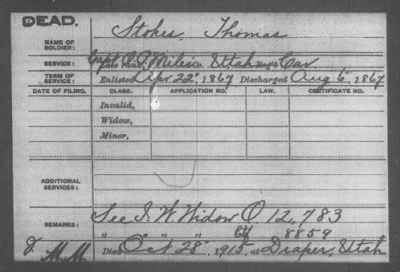 DEAD.
NAME OF SOLDIER: Stokes, Thomas
SERVICE: Capt. Miles Co. Utah Cav
TERM OF SERVICE: Enlisted Apr 22", 1867 Discharged Aug 6", 1867
DATE OF FILING. CLASS. APPLICATION NO. LAW. CERTIFICATE NO.
Invalid,
Widow,
Minor,
ADDITIONAL SERVICES:
REMARKS: See I. W. Widow O 12,783
" " " Ctf 8859
Died Oct 28", 1915, at Draper, Utah